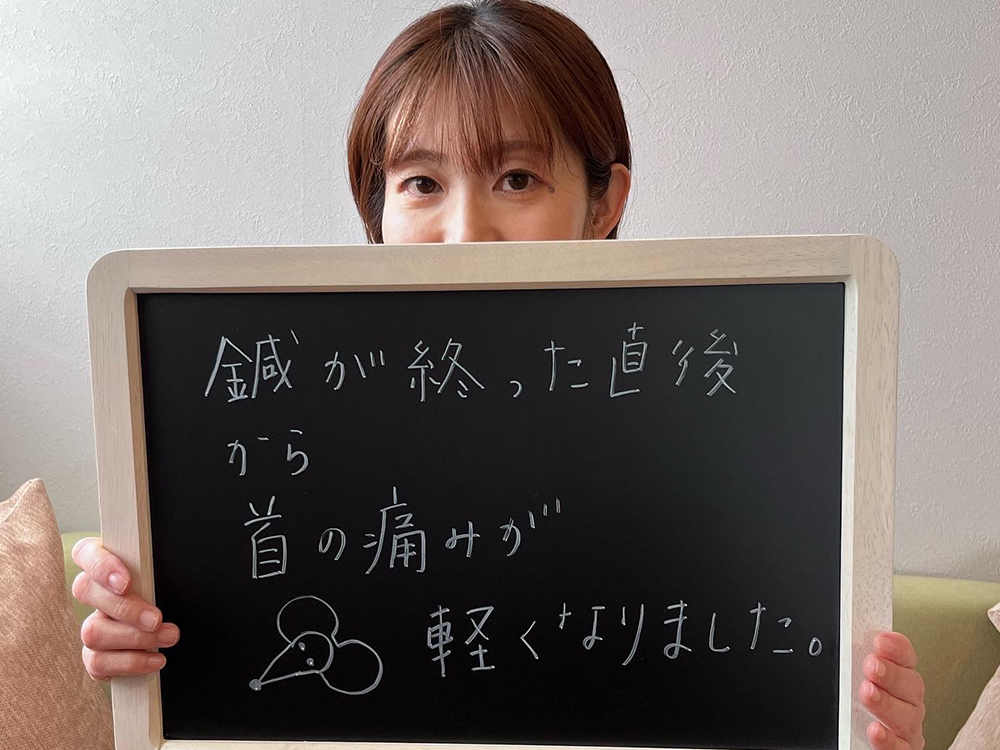 鍼が終った直後
から
首の痛みが
軽くなりました。